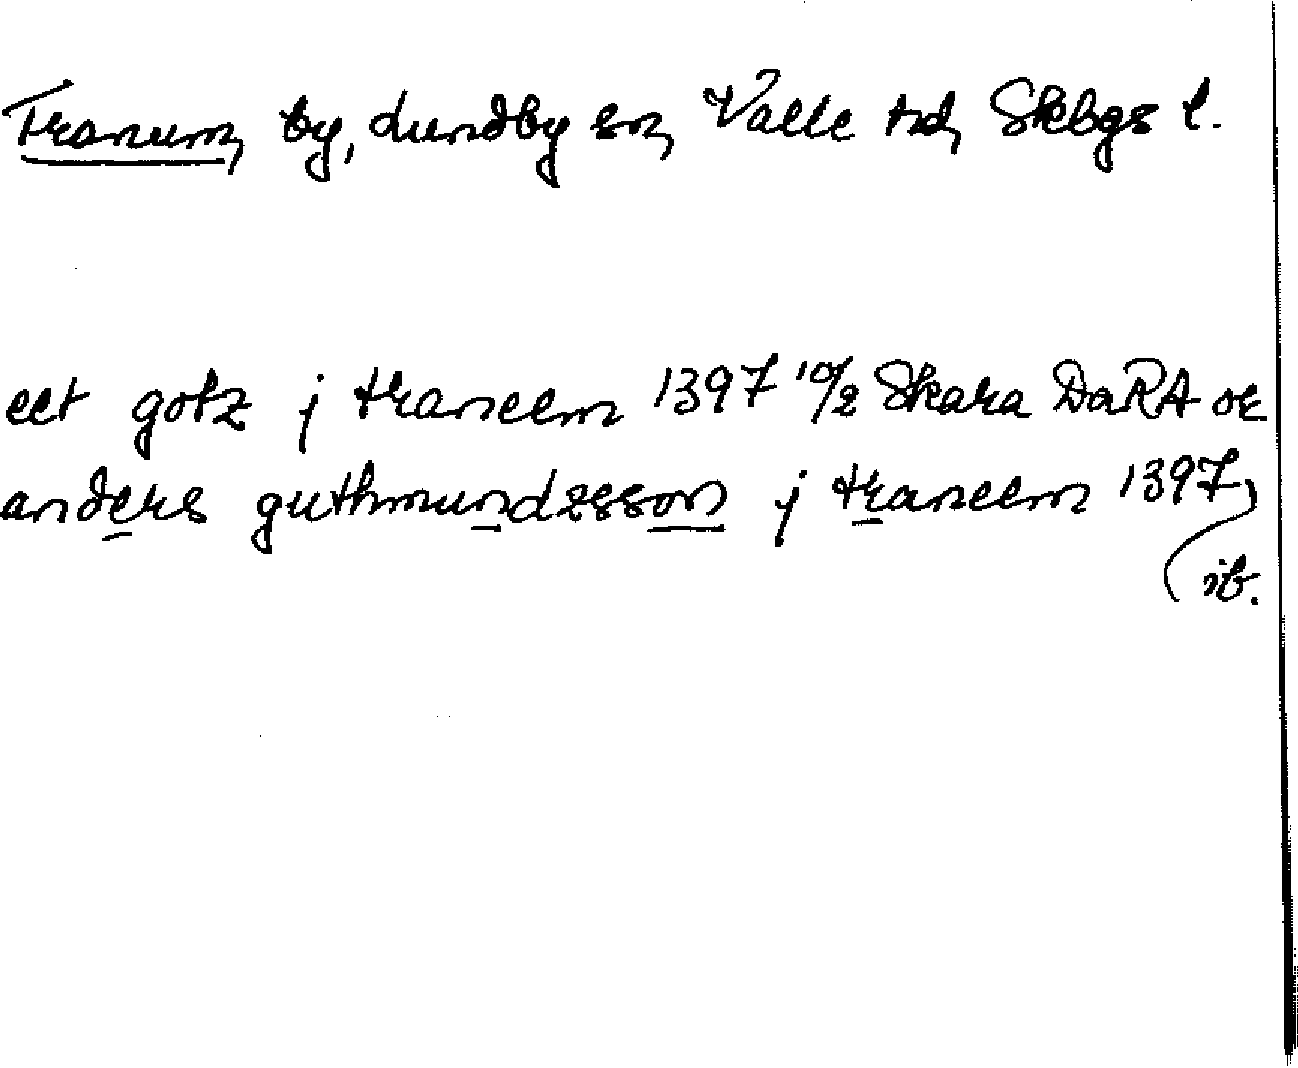 Tranum, by, Lundby sn, Valle hd, Skbgs l.
eet gotz j traneem 1397 10/2 Skara DaRA or
anders guthmundzsson j traneem 1397,
ib.